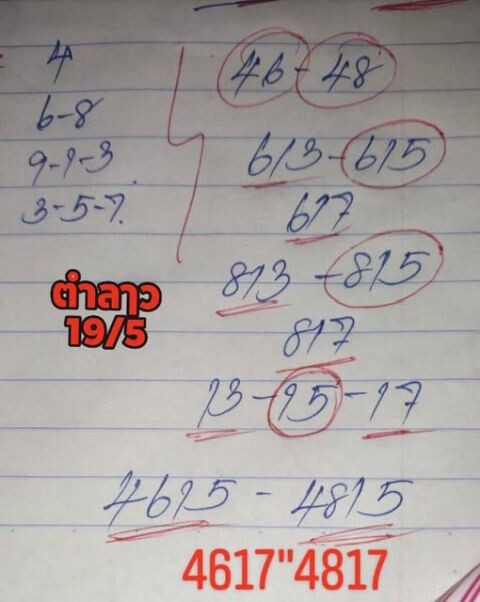 4
6-8
9-1-3
3-5-7
46-48
613-615
617
813-815
817
13-15-17
4615-4815
ตำลาว
19/5
4617"4817